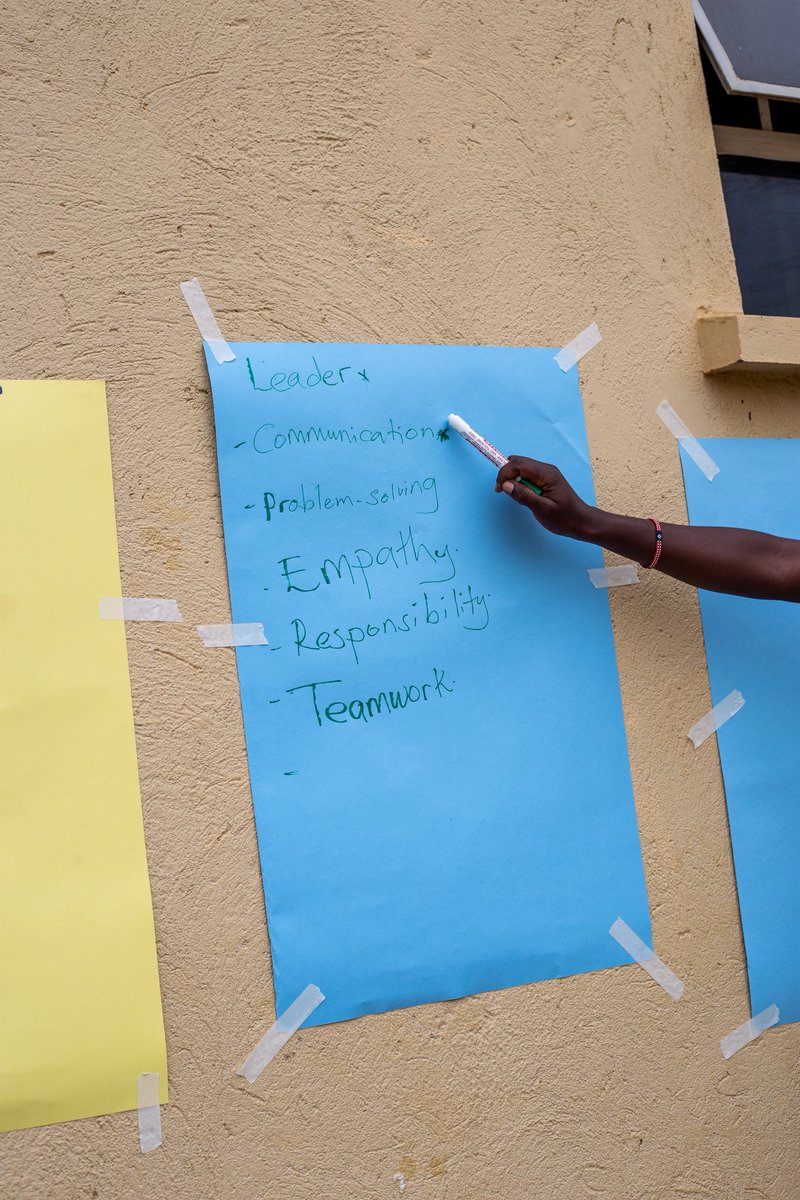 Leader*
- Communication*
- Problem-solving
- Empathy.
- Responsibility.
- Teamwork.
-